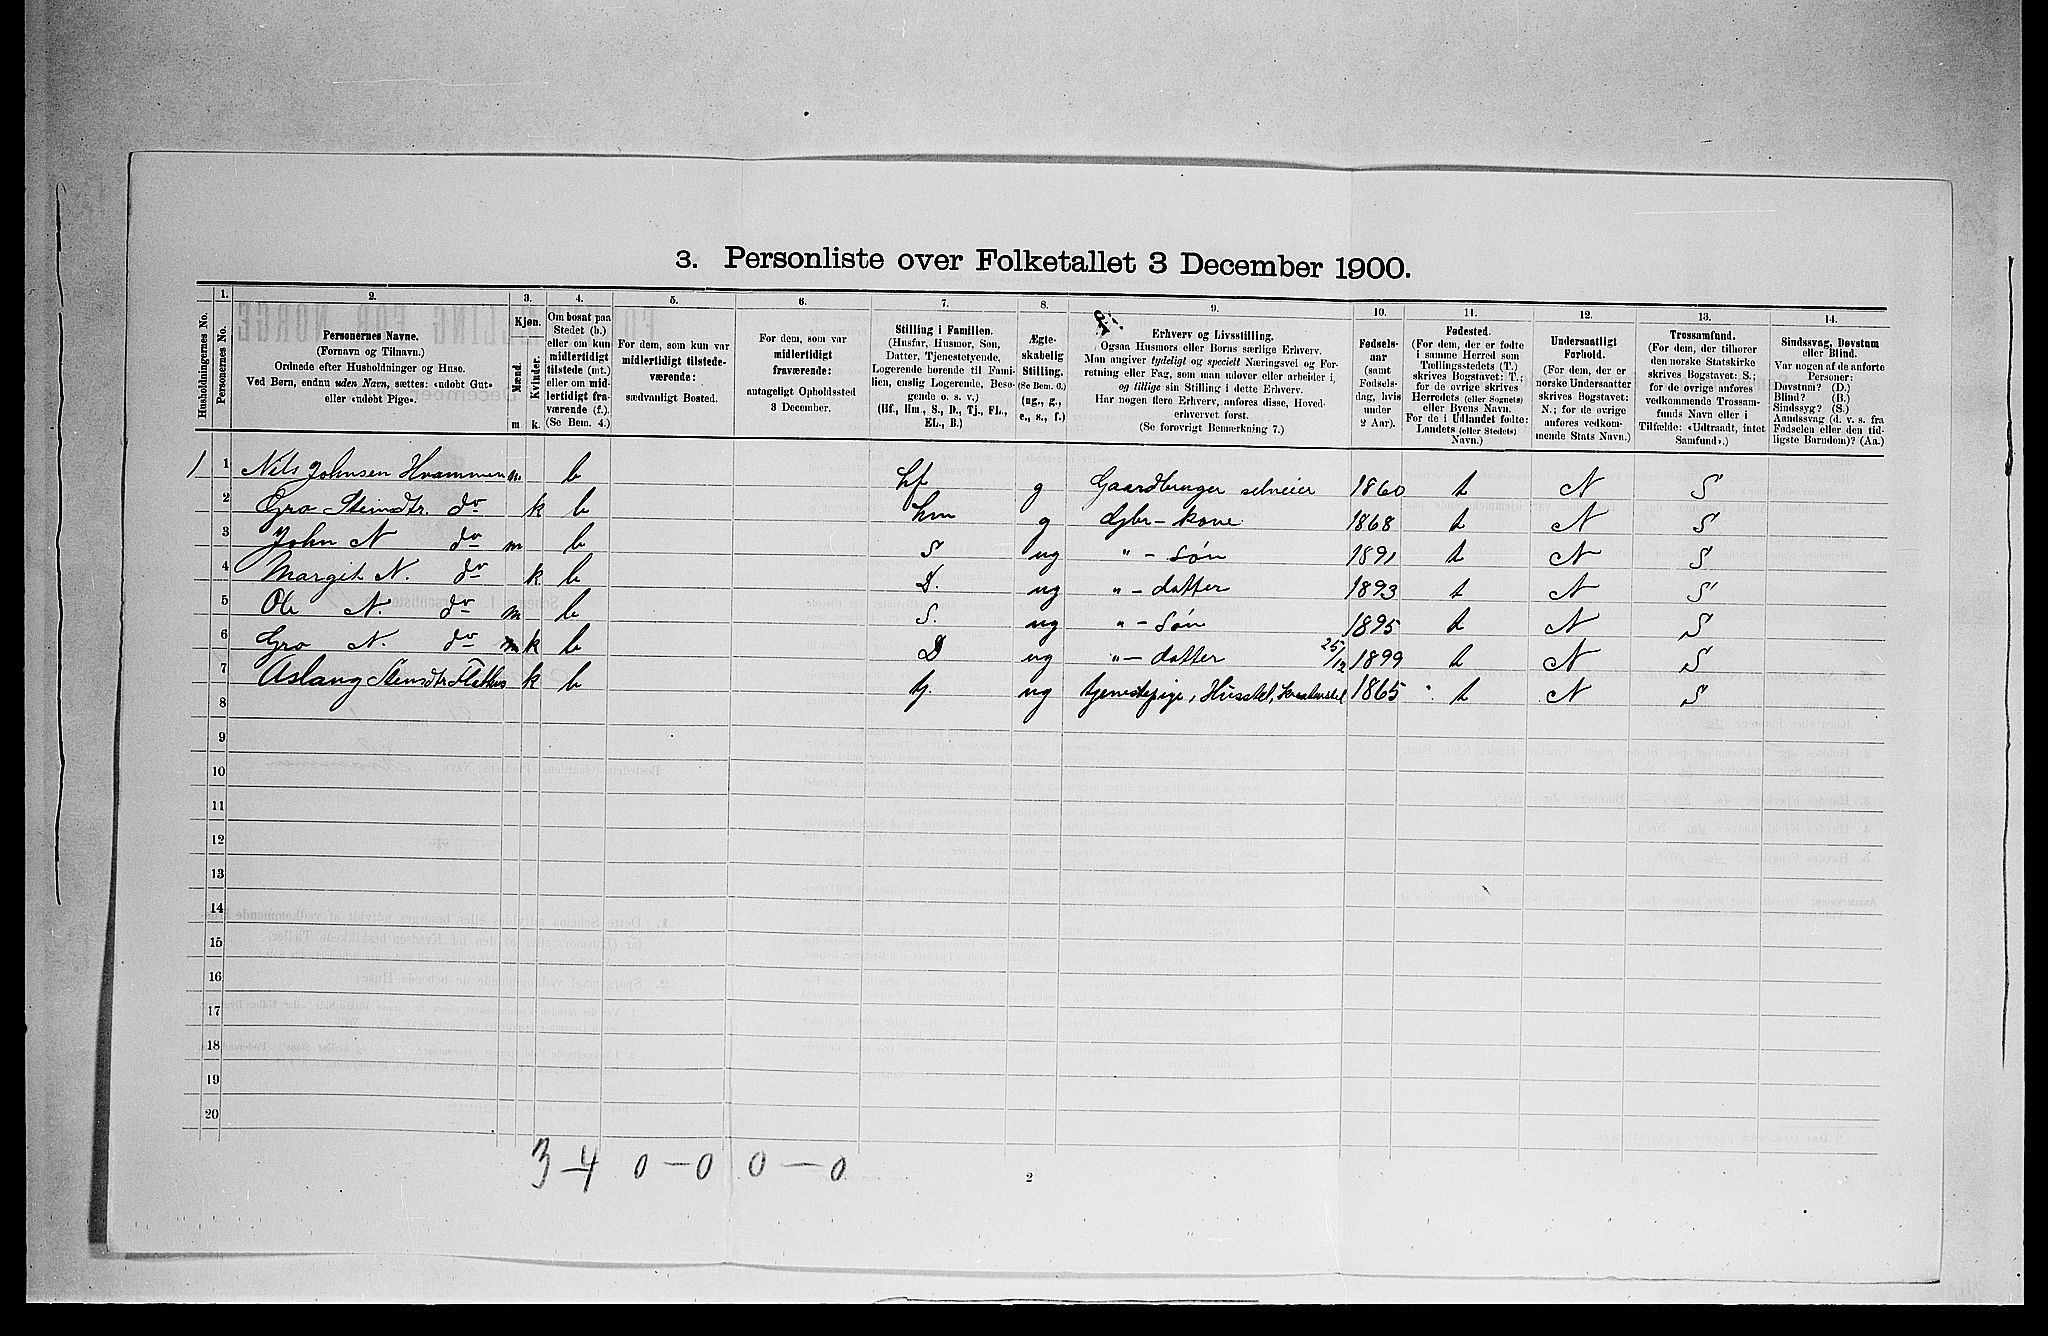 3. Personliste over Folketallet 3 December 1900.
1. 2. 3. 4. 5. 6. 7. 8. 9. 10. 11. 12. 13. 14.
Husholdningernes No.
Personernes No.
Personernes Navne.
(Fornavn og Tilnavn.)
Ordnede efter Husholdninger og Huse.
Ved Børn, endnu uden Navn, sættes: «udøbt Gut»
eller «udøbt Pige».
Kjøn.
Mænd.
Kvinder.
m. k.
Om bosat paa
Stedet (b.)
eller om kun
midlertidigt
tilstede (mt.)
eller om mid-
lertidigt fra-
værende (f.).
(Se Bem. 4.)
For dem, som kun var
midlertidigt tilstede-
værende:
sædvanligt Bosted.
For dem, som var
midlertidigt
fraværende:
antageligt Opholdssted
3 December.
Stilling i Familien.
(Husfar, Husmor, Søn,
Datter, Tjenestetyende,
Logerende hørende til Fami-
lien, enslig Logerende, Besø-
gende o. s. v.)
(Hf., Hm., S., D., Tj., FL.,
EL., B.)
Ægte-
skabelig
Stilling.
(Se Bem. 6.)
(ug., g.,
e., s., f.)
Erhverv og Livsstilling.
Ogsaa Husmors eller Børns særlige Erhverv.
Man angiver tydeligt og specielt Næringsvei og For-
retning eller Fag, som man udøver eller arbeider i,
og tillige sin Stilling i dette Erhverv.
Har nogen flere Erhverv, anføres disse, Hoved-
erhvervet først.
(Se forøvrigt Bemærkning 7.)
Fødsels-
aar
(samt
Fødsels-
dag, hvis
under
2 Aar).
Fødested.
(For dem, der er fødte
i samme Herred som
Tællingsstedets (T.)
skrives Bogstavet: T.;
for de øvrige skrives
Herredets (eller Sognets)
eller Byens Navn.
For de i Udlandet fødte:
Landets (eller Stedets)
Navn.)
Undersaatligt
Forhold.
(For dem, der er
norske Undersaatter
skrives Bogstavet:
N.; for de øvrige
anføres vedkom-
mende Stats Navn.)
Trossamfund.
(For dem, der tilhører
den norske Statskirke
skrives Bogstavet: S.;
for de øvrige anføres
vedkommende Trossam-
funds Navn eller i
Tilfælde: «Udtraadt, intet
Samfund».)
Sindssvag, Døvstum
eller Blind.
Var nogen af de anførte
Personer:
Døvstum? (D.)
Blind? (B.)
Sindssyg? (S.)
Aandssvag (d. v. s. fra
Fødselen eller den tid-
ligste Barndom)? (Aa.)
1 1 Nils Johnsen Hvammen m. b hf g Gaardbruger selveier 1860 t N S
2 Gro Steinsdtr. do k b hm g Gbr - kone 1868 t N S
3 John N do m b S ug " - Søn 1891 t N S
4 Margit N. do k b D. ug " - datter 1893 t N S
5 Ole N. do m b S. ug " - Søn 1895 t N S
6 Gro N. do k b D ug " - datter 25/12 1899 t N S
7 Aslaug Steinsdtr k b tj ug tjenestepige, Husstel, 1865 t N S
8
9
10
11
12
13
14
15
16
17
18
19
20
3 - 4 0 - 0 0 - 0
2